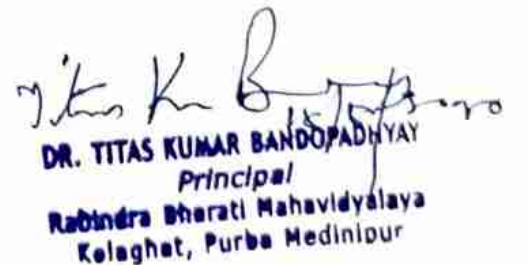 Titas Kr B
DR. TITAS KUMAR BANDOPADHYAY
Principal
Rabindra Bharati Mahavidyalaya
Kolaghat, Purba Medinipur